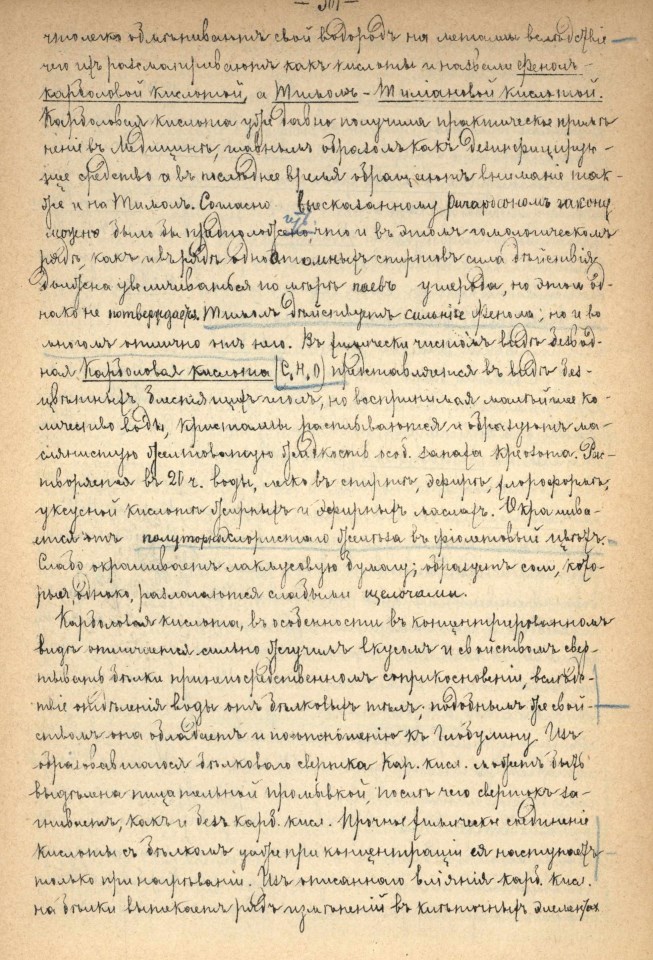 — 301 —
что легко обмѣниваютъ свой водородъ на металлы вслѣдствіе
чего ихъ разсматриваютъ какъ кислоты и назвали Фенолъ-
карболовой кислотой, а Тимолъ - Тиміановой кислотой.
Карболовая кислота уже давно получила практическое примѣ-
неніе въ Медицинѣ, главнымъ образомъ какъ дезинфицирую-
щее средство а въ послѣднее время обращаютъ вниманіе так-
же и на Тимолъ. Согласно высказанному Ричардсономъ закону
можно было бы предположить, что и въ этомъ гомологическомъ
ряду, какъ и въ ряду одноатомныхъ спиртовъ сила дѣйствія
должна увеличиваться по мѣрѣ паевъ углерода, но этого од-
нако не потверждаетъ. Тимолъ дѣйствуетъ сильнѣе Фенола; но и во
многомъ отлично отъ него. Въ химически чистомъ видѣ безвод-
ная Карболовая кислота (C H O) представляется въ видѣ без-
цвѣтныхъ, блестящихъ иголъ, но воспринимая малѣйшее ко-
личество воды, кристаллы расплываются и образуютъ ма-
слянистую желтоватую жидкость особ. запаха креозота. Рас-
творяется въ 20 ч. воды, легко въ спиртѣ, эфирѣ, хлороформѣ,
уксусной кислотѣ жирныхъ и эфирныхъ маслахъ. Окрашива-
ется отъ полуторнохлористаго желѣза въ фіолетовый цвѣтъ.
Слабо окрашиваетъ лакмусовую бумагу; образуетъ соли, кото-
рыя однако, разлагаются слабыми щелочами.
Карболовая кислота, въ особенности въ концентрированномъ
видѣ отличается сильно жгучимъ вкусомъ и свойствомъ свер-
тывать бѣлки при непосредственномъ соприкосновеніи, вслѣд-
твіе отдѣленія воды отъ бѣлковыхъ тѣлъ, подобнымъ же свой-
ствомъ она обладаетъ и по отношенію къ Глобулину. Изъ
образовавшагося бѣлковаго свертка Кар. кисл. можетъ быть
выдѣлена тщательной промывкой, послѣ чего свертокъ за-
гниваетъ, какъ и безъ карб. кисл. Прочное химическое соединеніе
кислоты съ бѣлкомъ даже при концентраціи ея наступаетъ
только при нагрѣваніи. Изъ описаннаго вліянія карб. кис.
на бѣлки вытекаетъ рядъ измѣненій въ клѣточныхъ элементах